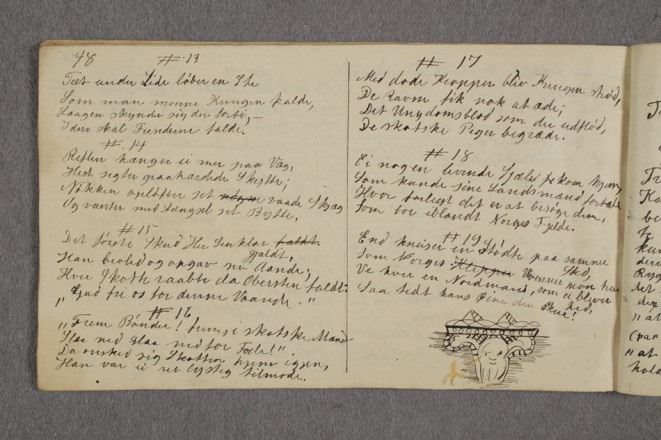 48
# 13
Tæt under Lide løber en Aae
Som man monne Kringen kalde,
Laagen skynder sig der forbi, —
I den skal Fienderne falde.
# 14
Riflen hænger ei mer paa Væg,
Hist sigter graahærdede Skytte;
Nøkken opløfter sit vaade Skjæg
Og venter med Længsel sit Bytte,
# 15
Det første Skud Hr Sinklar
gjaldt,
Han brølad og opgav sin Aande;
Hver Skotte raabte da Obersten faldt:
"Gud fri os for denne Vaande."
# 16
"Frem Bønder! frem, i Norske Mænd
Slaa ned slaa ned for Fode!"
Da ønsked sig Skotten hjem igjen,
Han var ei ret lystig tilmode.
# 17
Med døde Kroppe blev Kringen strød,
De Ravne fik nok at æde;
Det Ungdomsblod som der udflød,
De skotske Piger begræde.
# 18
Ei nogen levende Sjæl kom hjem
Som kunde sine Landsmænd fortælle
Hvor farligt det er at besøge dem,
Som boe iblandt Norges Fjelde.
# 19
End kneiser en Støtte paa samme
Sted,
Som Norges Uvenner mon true
Ve hver en Nordmand, som ei bliver
hed,
Saa tidt hans Øine den skue!